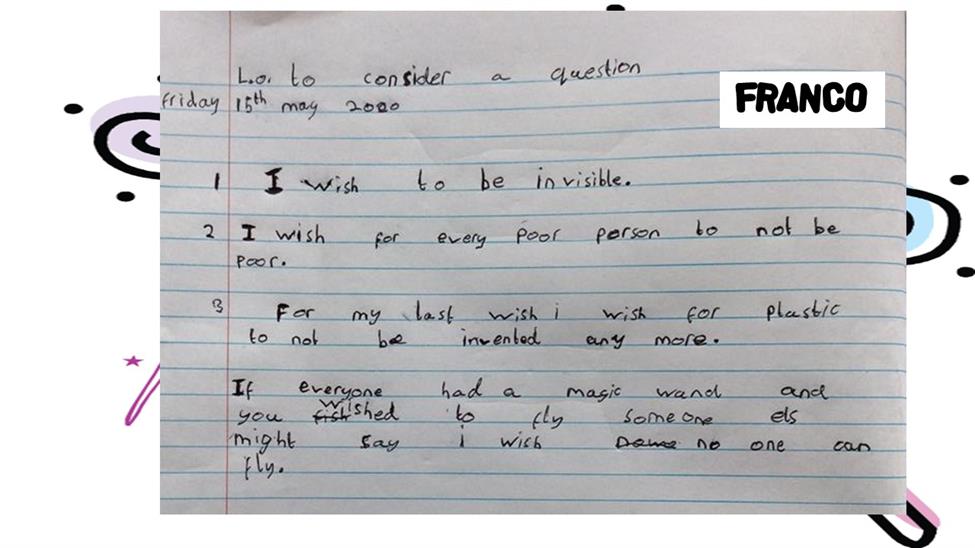 L.o. to consider a question
FRANCO
friday 15th may 2020
1 I wish to be invisible.
2 I wish for every poor person to not be
poor.
3 For my last wish i wish for plastic
to not be invented any more.
If everyone had a magic wand and
you wished to fly someone els
might say i wish no one can
fly.